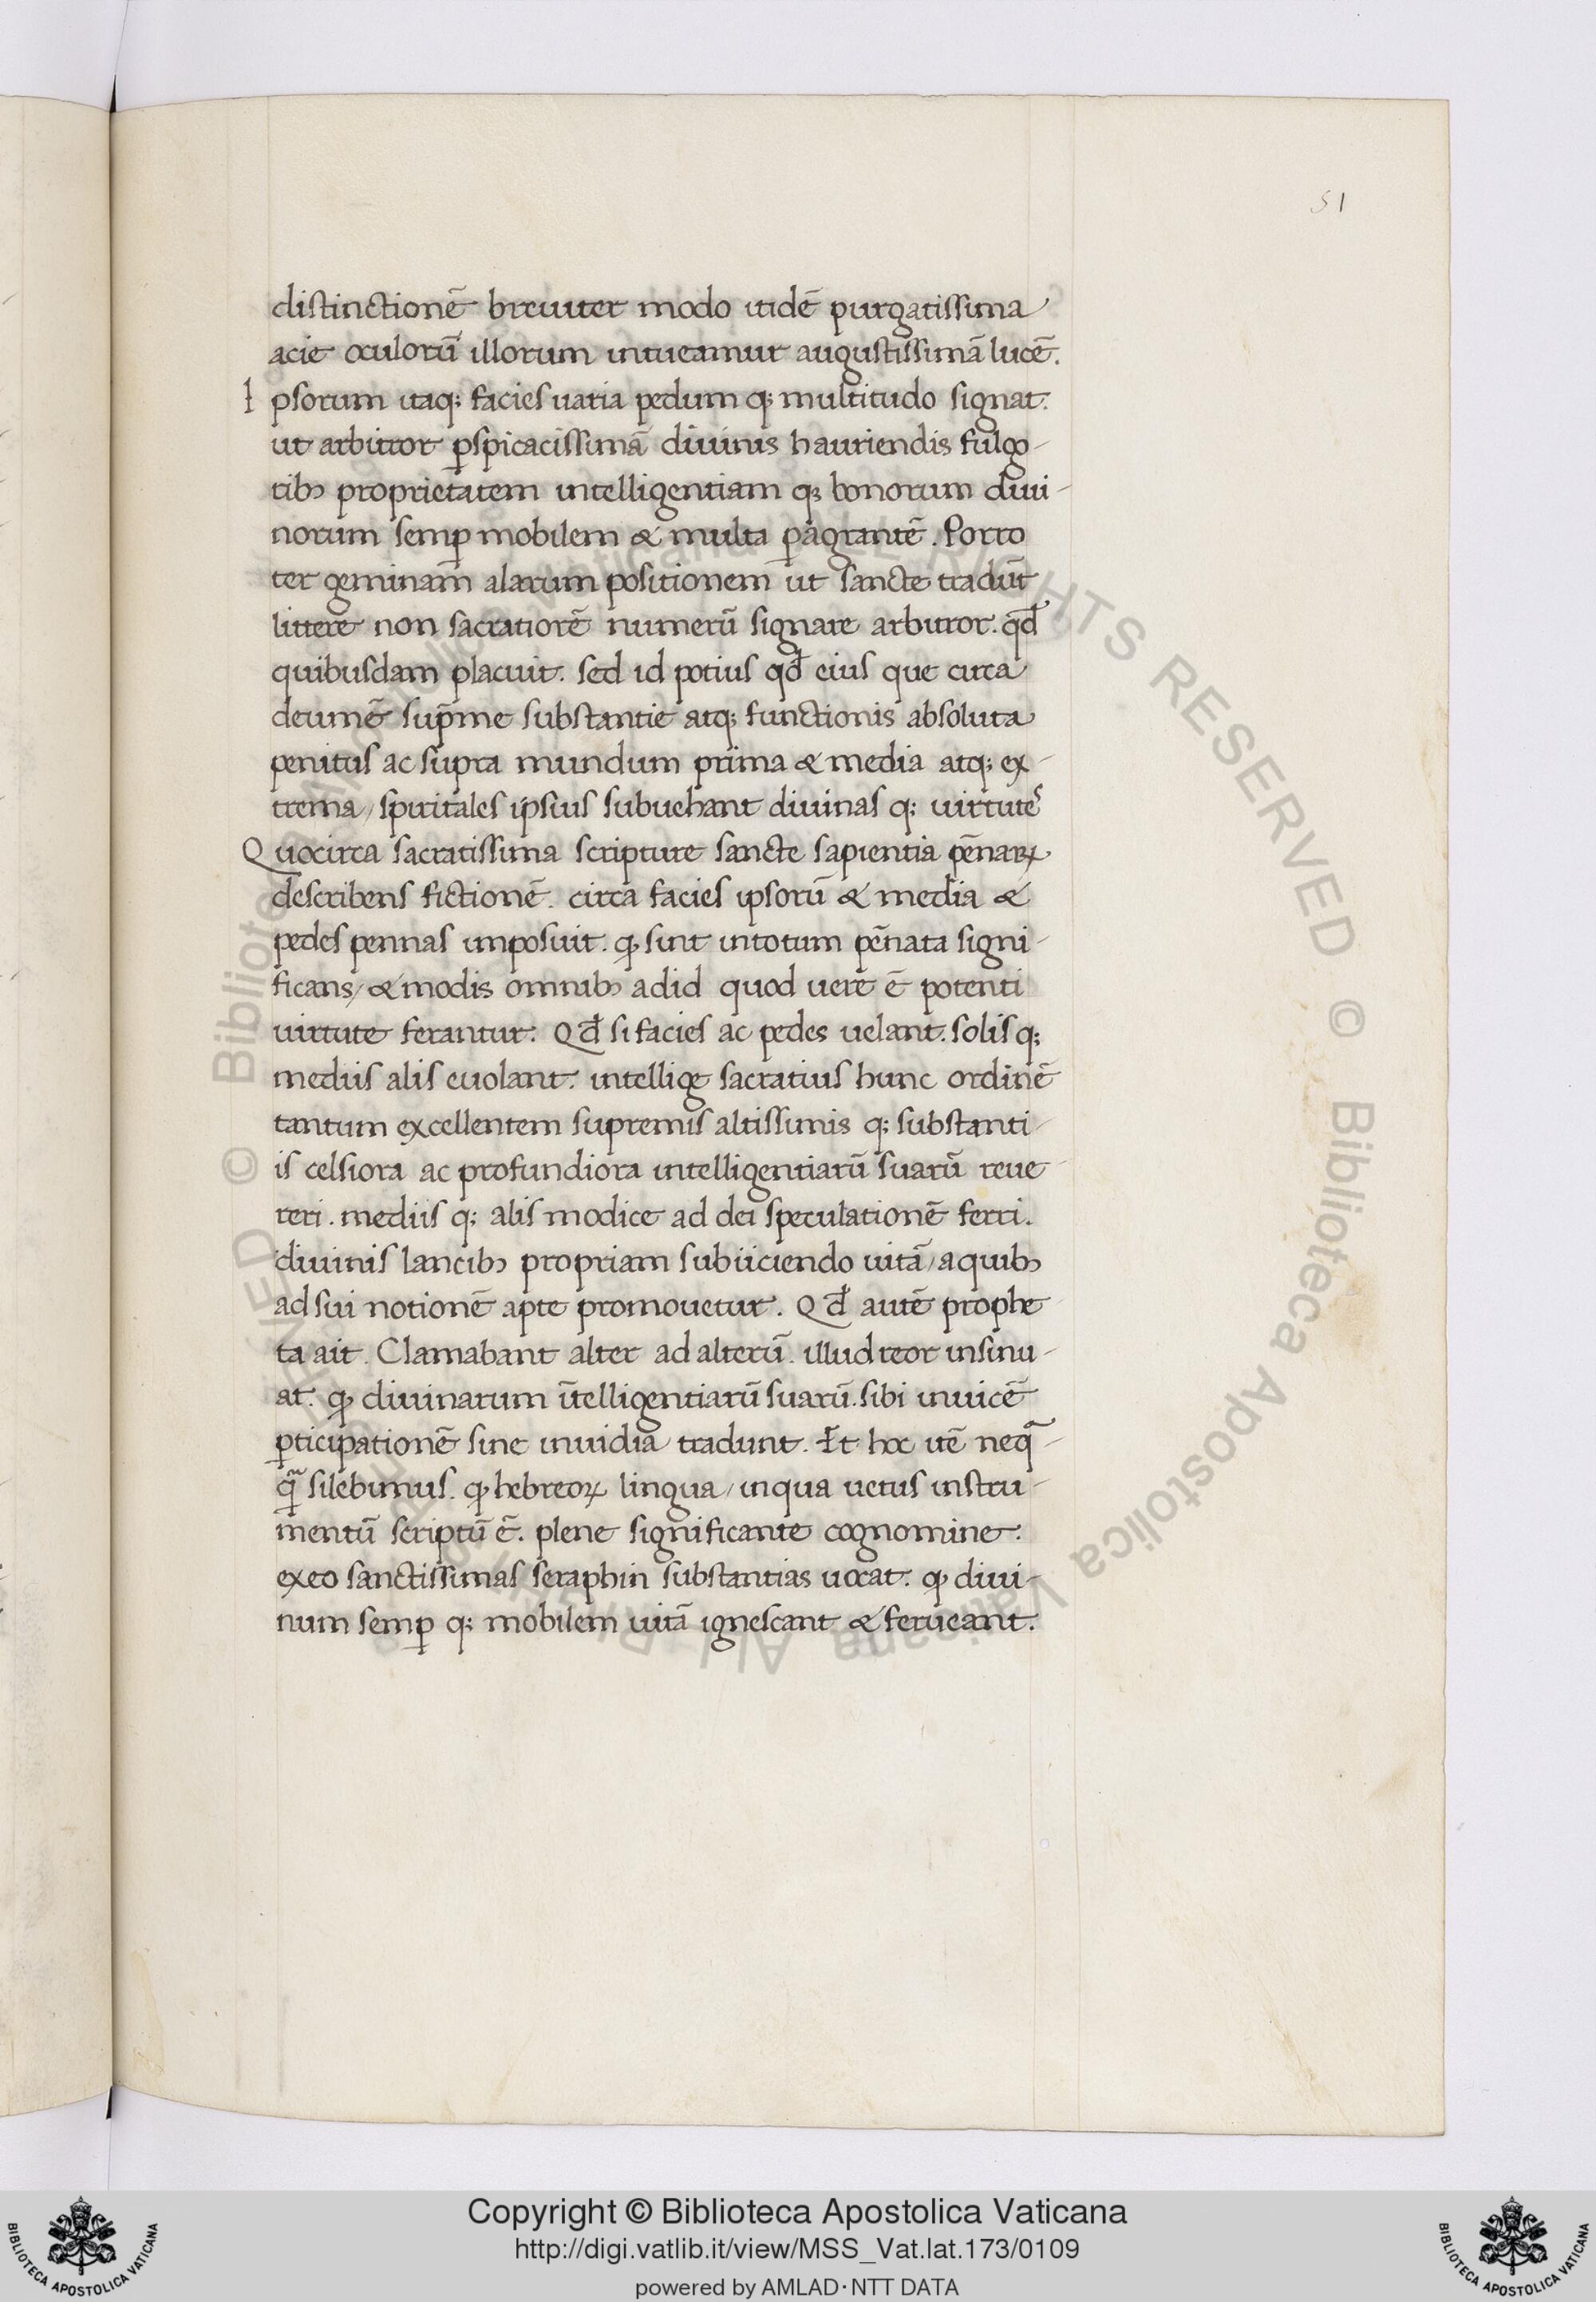 51
distinctionē breuiter modo itidē purgatissima
acie oculorū illorum intueamur augustissimā lucē.
Ipsorum itaq; facies uaria pedum q; multitudo signat.
ut arbitror ꝑspicacissimā diuinis hauriendis fulgo-
ribꝰ proprietatem intelligentiam q; bonorum diui-
norum semꝑ mobilem & multa ꝑagrantē. Porro
ter geminam alarum positionem ut sancte tradūt
littere non sacratiorē numerū signare arbitror. qd̄
quibusdam placuit. sed id potius qd̄ eius que circa
deum ē sup̄me substantie atq; functionis absoluta
penitus ac supra mundum prima & media atq; ex-
trema/ spiritales ipsius subuehant diuinas q; uirtutes
Quocirca sacratissima scripture sancte sapientia pēnaꝝ
describens fictionē. circa facies ipsorū & media &
pedes pennas imposuit. ꝙ sint intotum pēnata signi-
ficans/ & modis omnibꝰ adid quod uere ē potenti
uirtute ferantur. Qd̄ si facies ac pedes uelant. solis q;
mediis alis euolant. intellige sacratius hunc ordinē
tantum excellentem supremis altissimis q; substanti-
is celsiora ac profundiora intelligentiarū suarū reue-
reri. mediis q; alis modice ad dei speculationē ferri.
diuinis lancibꝰ propriam subiiciendo uitā/ aquibꝰ
ad sui notionē apte promouetur. Qd̄ autē prophe-
ta ait. Clamabant alter ad alterū. illud reor insinu-
at. ꝙ diuinarum ītelligentiarū suarū. sibi inuicē
ꝑticipationē sine inuidia tradunt. Et hoc itē neq̄-
q̄ silebimus. ꝙ hebreoꝝ lingua/ inqua uetus instru-
mentū scriptū ē. plene significante cognomine.
exeo sanctissimas seraphin substantias uocat. ꝙ diui-
num semꝑ q; mobilem uitā ignescant & ferueant.
Copyright © Biblioteca Apostolica Vaticana
http://digi.vatlib.it/view/MSS_Vat.lat.173/0109
powered by AMLAD·NTT DATA
BIBLIOTECA APOSTOLICA VATICANA
BIBLIOTECA APOSTOLICA VATICANA